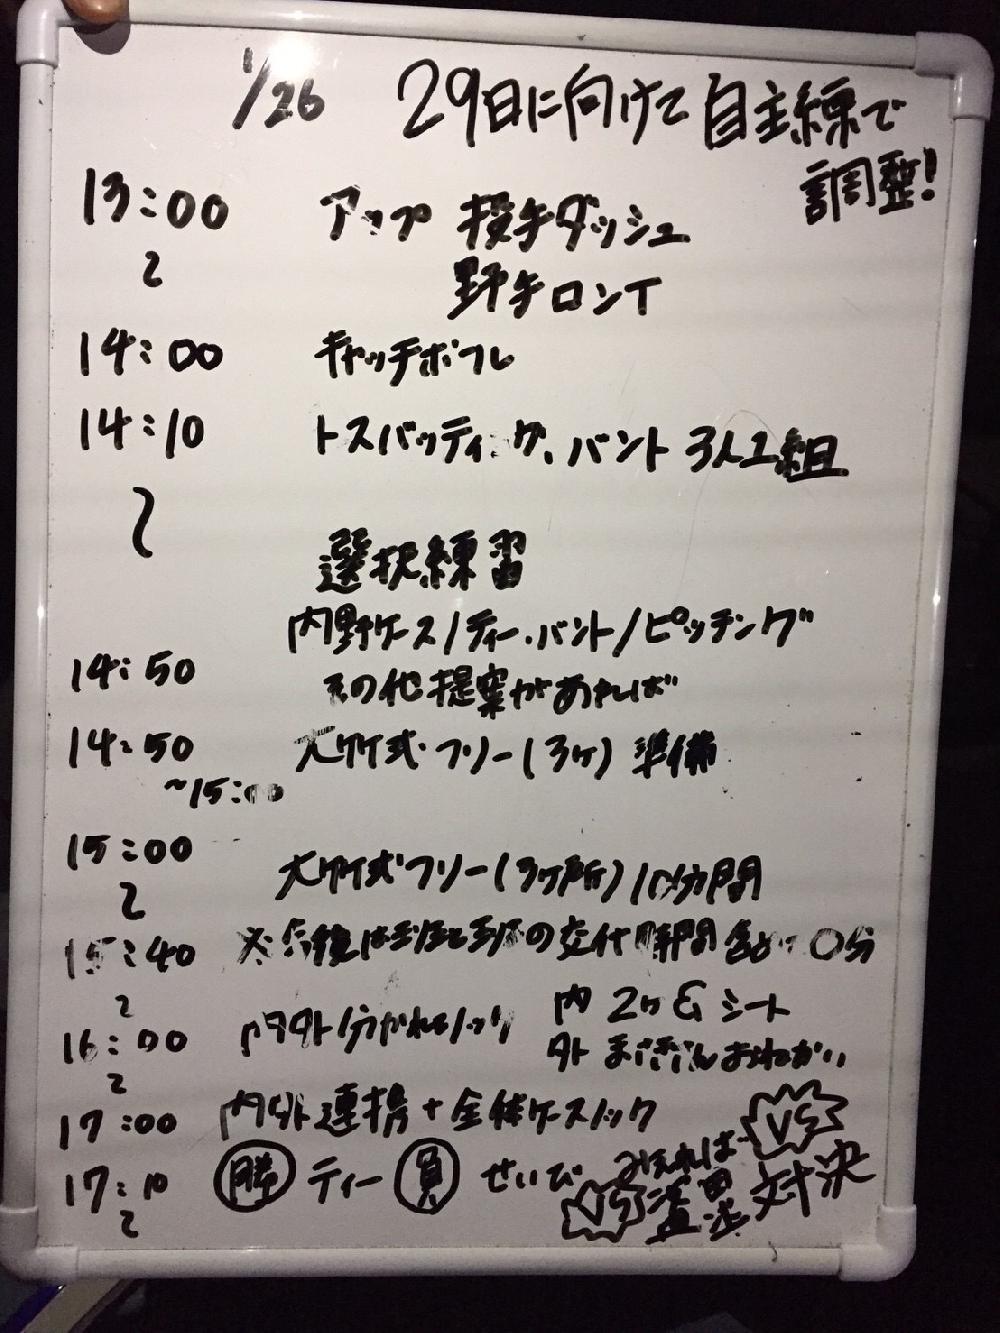 1/26 29日に向けて自主練で
調整!
13:00 アップ 投手ダッシュ
〜 野手ロンT
14:00 キャッチボール
14:10 トスバッティング、バント 3人1組
〜
選択練習
内野ケース/ティー・バント/ピッチング
14:50 その他提案があれば
14:50 大竹式フリー(3ヶ) 準備
~15:00
15:00 大竹式フリー(3ヶ所) 10分間
〜
15:40 の交代時間
〜 内 2ヶ & シート
16:00 内外分かれノック 外
〜
17:00 内外連携+全体ケースノック VS
17:10 勝 ティー 負 せいび 対決
〜 VS